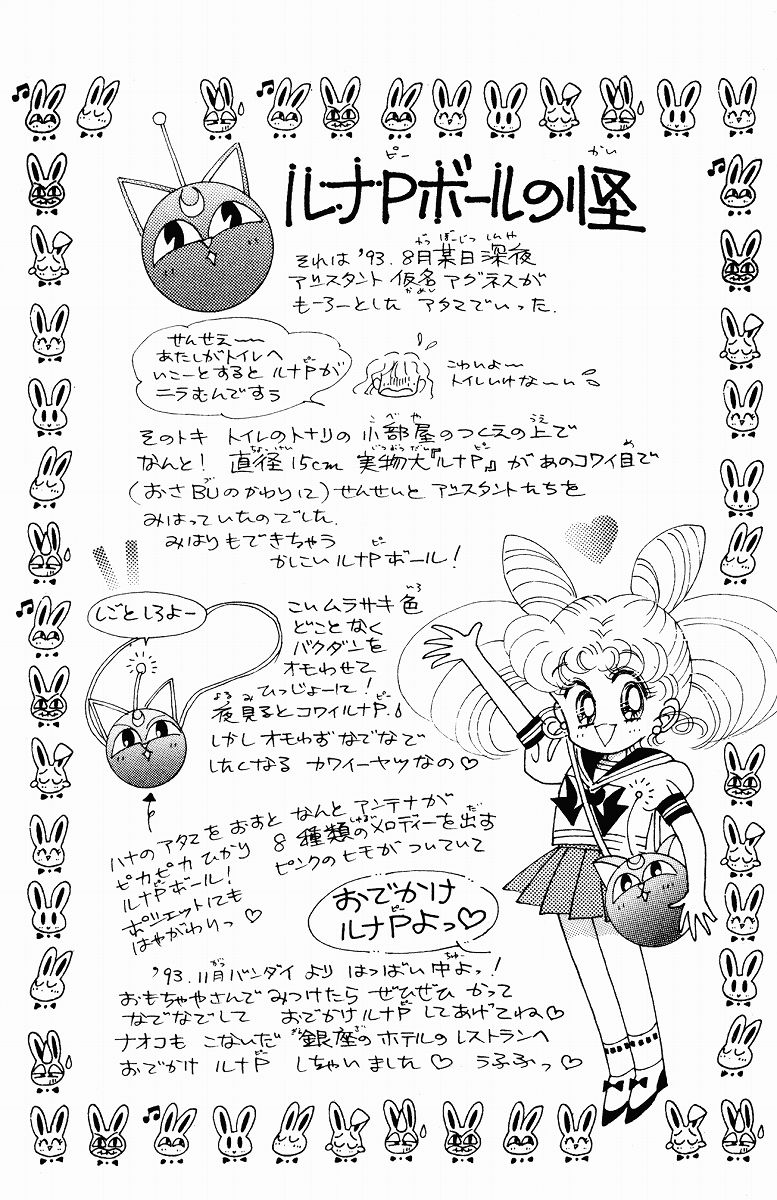 ルナPボールの怪
それは '93. 8月某日深夜
アシスタント 仮名 アグネスが
もーろーとした アタマでいった.
せんせえ〜〜
あたしがトイレへ
いこーとすると ルナPが
ニラむんですぅ
こわいよ〜
トイレいけな〜い
そのトキ トイレのトナリの 小部屋のつくえの上で
なんと! 直径15cm 実物大『ルナP』が あのコワイ目で
(おさBUのかわりに) せんせいと アシスタントたちを
みはっていたのでした.
みはりもできちゃう
かしこい ルナPボール!
しごとしろよー
こいムラサキ色
どことなく
バクダンを
オモわせて
ひっじょーに!
夜見るとコワイルナP.
しかし オモわずなでなで
したくなる カワイーヤツなの♡
ハナのアタマを おすと なんと アンテナが
ピカピカ ひかり 8種類のメロディーを出す
ルナPボール! ピンクのヒモが ついていて
ポシェットにも
はやがわりっ♡
おでかけ
ルナPよっ♡
'93. 11月 バンダイ より はつばい中よっ!
おもちゃやさんで みつけたら ぜひぜひ かって
なでなでして おでかけルナP してあげてね♡
ナオコも こないだ 銀座の ホテルの レストランへ
おでかけ ルナP しちゃいました♡ うふふっ♡